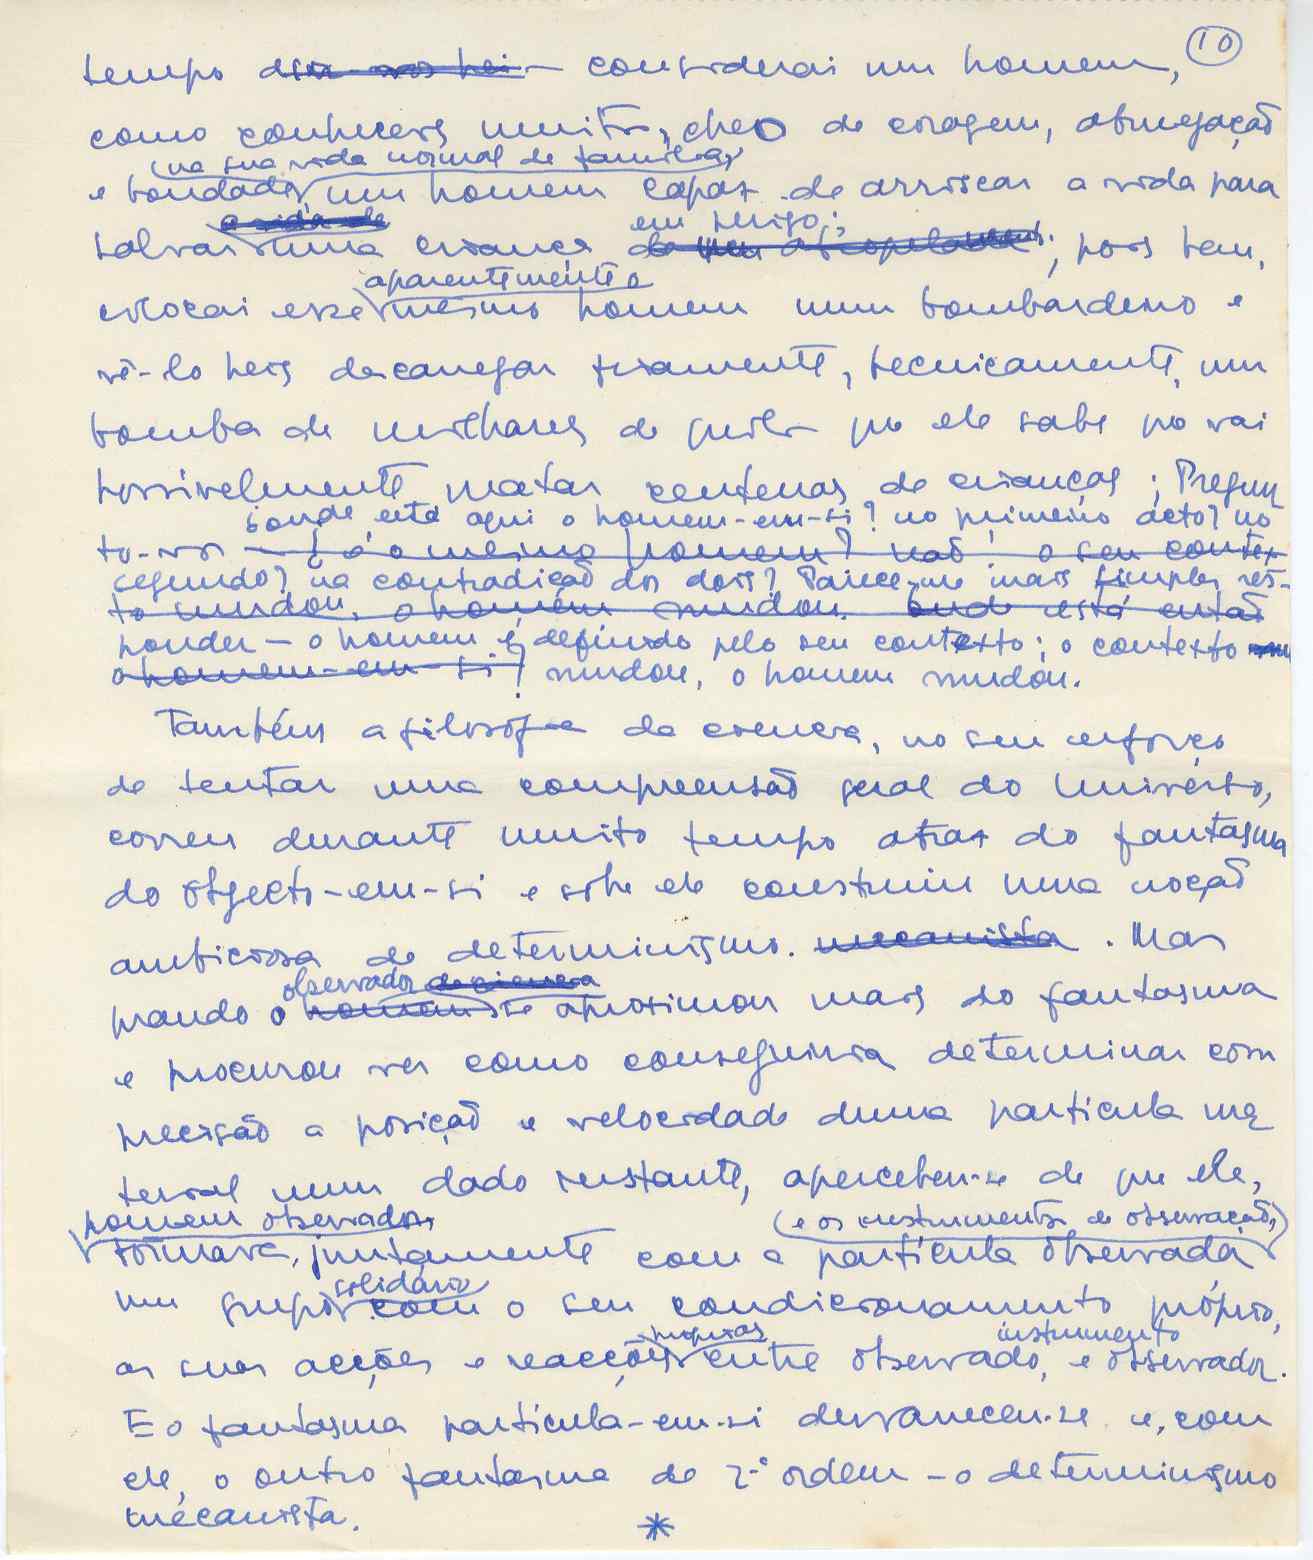 10
tempo — considerai um homem,
como conheceis muitos, cheio de coragem, abnegação
(na sua vida normal de família)
e bondade, um homem capaz de arriscar a vida para
a vida de em perigo;
salvar uma criança de um atropelamento; pois bem,
aparentemente o
colocai esse mesmo homem num bombardeiro e
vê-lo heis descarregar friamente, tecnicamente, um
bomba de milhares de quilos que ele sabe que vai
horrivelmente matar centenas de crianças; Pregun
onde está aqui o homem-em-si? no primeiro acto? no
to-vos — é o mesmo homem? não, o seu contex
segundo? na contradição dos dois? Parece-me mais simples res-
to mudou, o homem mudou. onde está então
ponder — o homem é definido pelo seu contexto; o contexto
o homem-em-si? mudou, o homem mudou.
Também a filosofia da ciência, no seu esforço
de tentar uma compreensão geral do Universo,
correu durante muito tempo atraz do fantasma
do objecto-em-si e sobre ele construiu uma noção
ambiciosa de determinismo. mecanista. Mas
observador da ciência
quando o homem se aproximou mais do fantasma
e procurou ver como conseguiria determinar com
precisão a posição e velocidade duma partícula ma
terial num dado instante, apercebeu-se de que ele,
homem observador, (e os instrumentos de observação,)
formava, juntamente com a partícula observada
solidário
um grupo com o seu condicionamento próprio,
proprias instrumento
as suas acções e reacções entre observado, e observador.
E o fantasma partícula-em-si desvaneceu-se e, com
ele, o outro fantasma de 2ª ordem — o determinismo
mecanista.
*